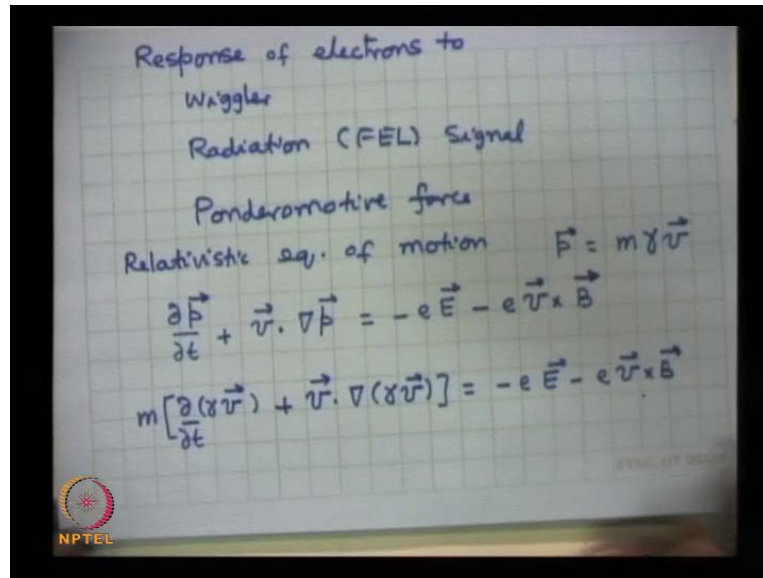 Response of electrons to
Wiggler
Radiation (FEL) Signal
Ponderomotive force
Relativistic eq. of motion p⃗ = mγv⃗
∂p⃗/∂t + v⃗ . ∇p⃗ = -eE⃗ - e v⃗ × B⃗
m[∂/∂t (γv⃗) + v⃗ . ∇(γv⃗)] = -eE⃗ - e v⃗ × B⃗
NPTEL